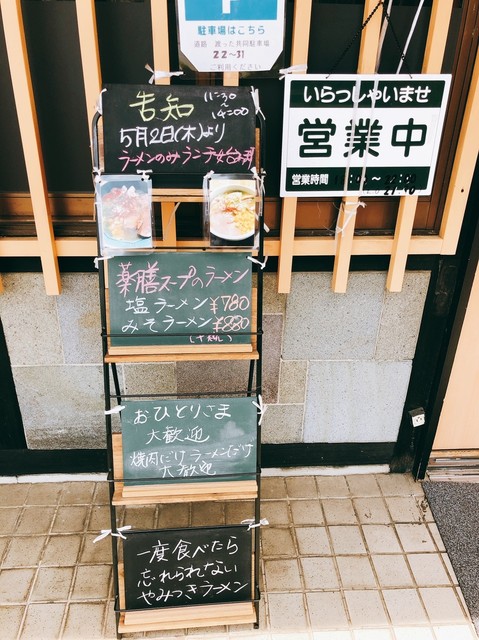 P
駐車場はこちら
22〜31
ご利用ください
いらっしゃいませ
営業中
営業時間
告知
11:30
〜
14:00
5月2日(木)より
ラーメンのみランチ始め
薬膳スープのラーメン
塩ラーメン¥780
みそラーメン¥880
おひとりさま
大歓迎
焼肉だけラーメンだけ
大歓迎
一度食べたら
忘れられない
やみつきラーメン